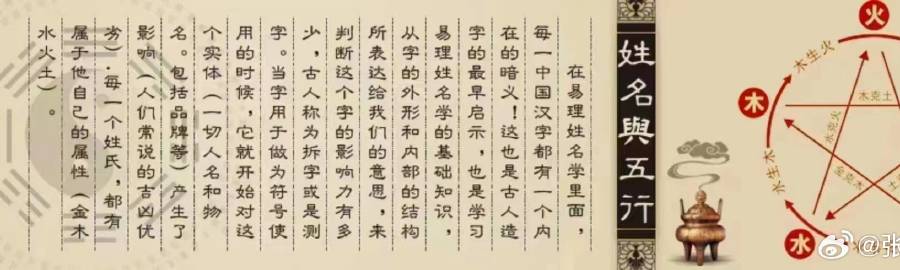 姓名與五行
在易理姓名学里面，
每一中国汉字都有一个内
在的暗义！这也是古人造
字的最早启示，也是学习
易理姓名学的基础知识，
从字的外形和内部的结构
所表达给我们的意思，来
判断这个字的影响力有多
少，古人称为拆字或是测
字。当字用于做为符号使
用的时候，它就开始对这
个实体（一切人名和物
名。包括品牌等）产生了
影响（人们常说的吉凶优
劣）。每一个姓氏，都有
属于他自己的属性（金木
水火土）。
火
木生火
木
木克土
水克火
金克木
土
水生木
水
火
@张